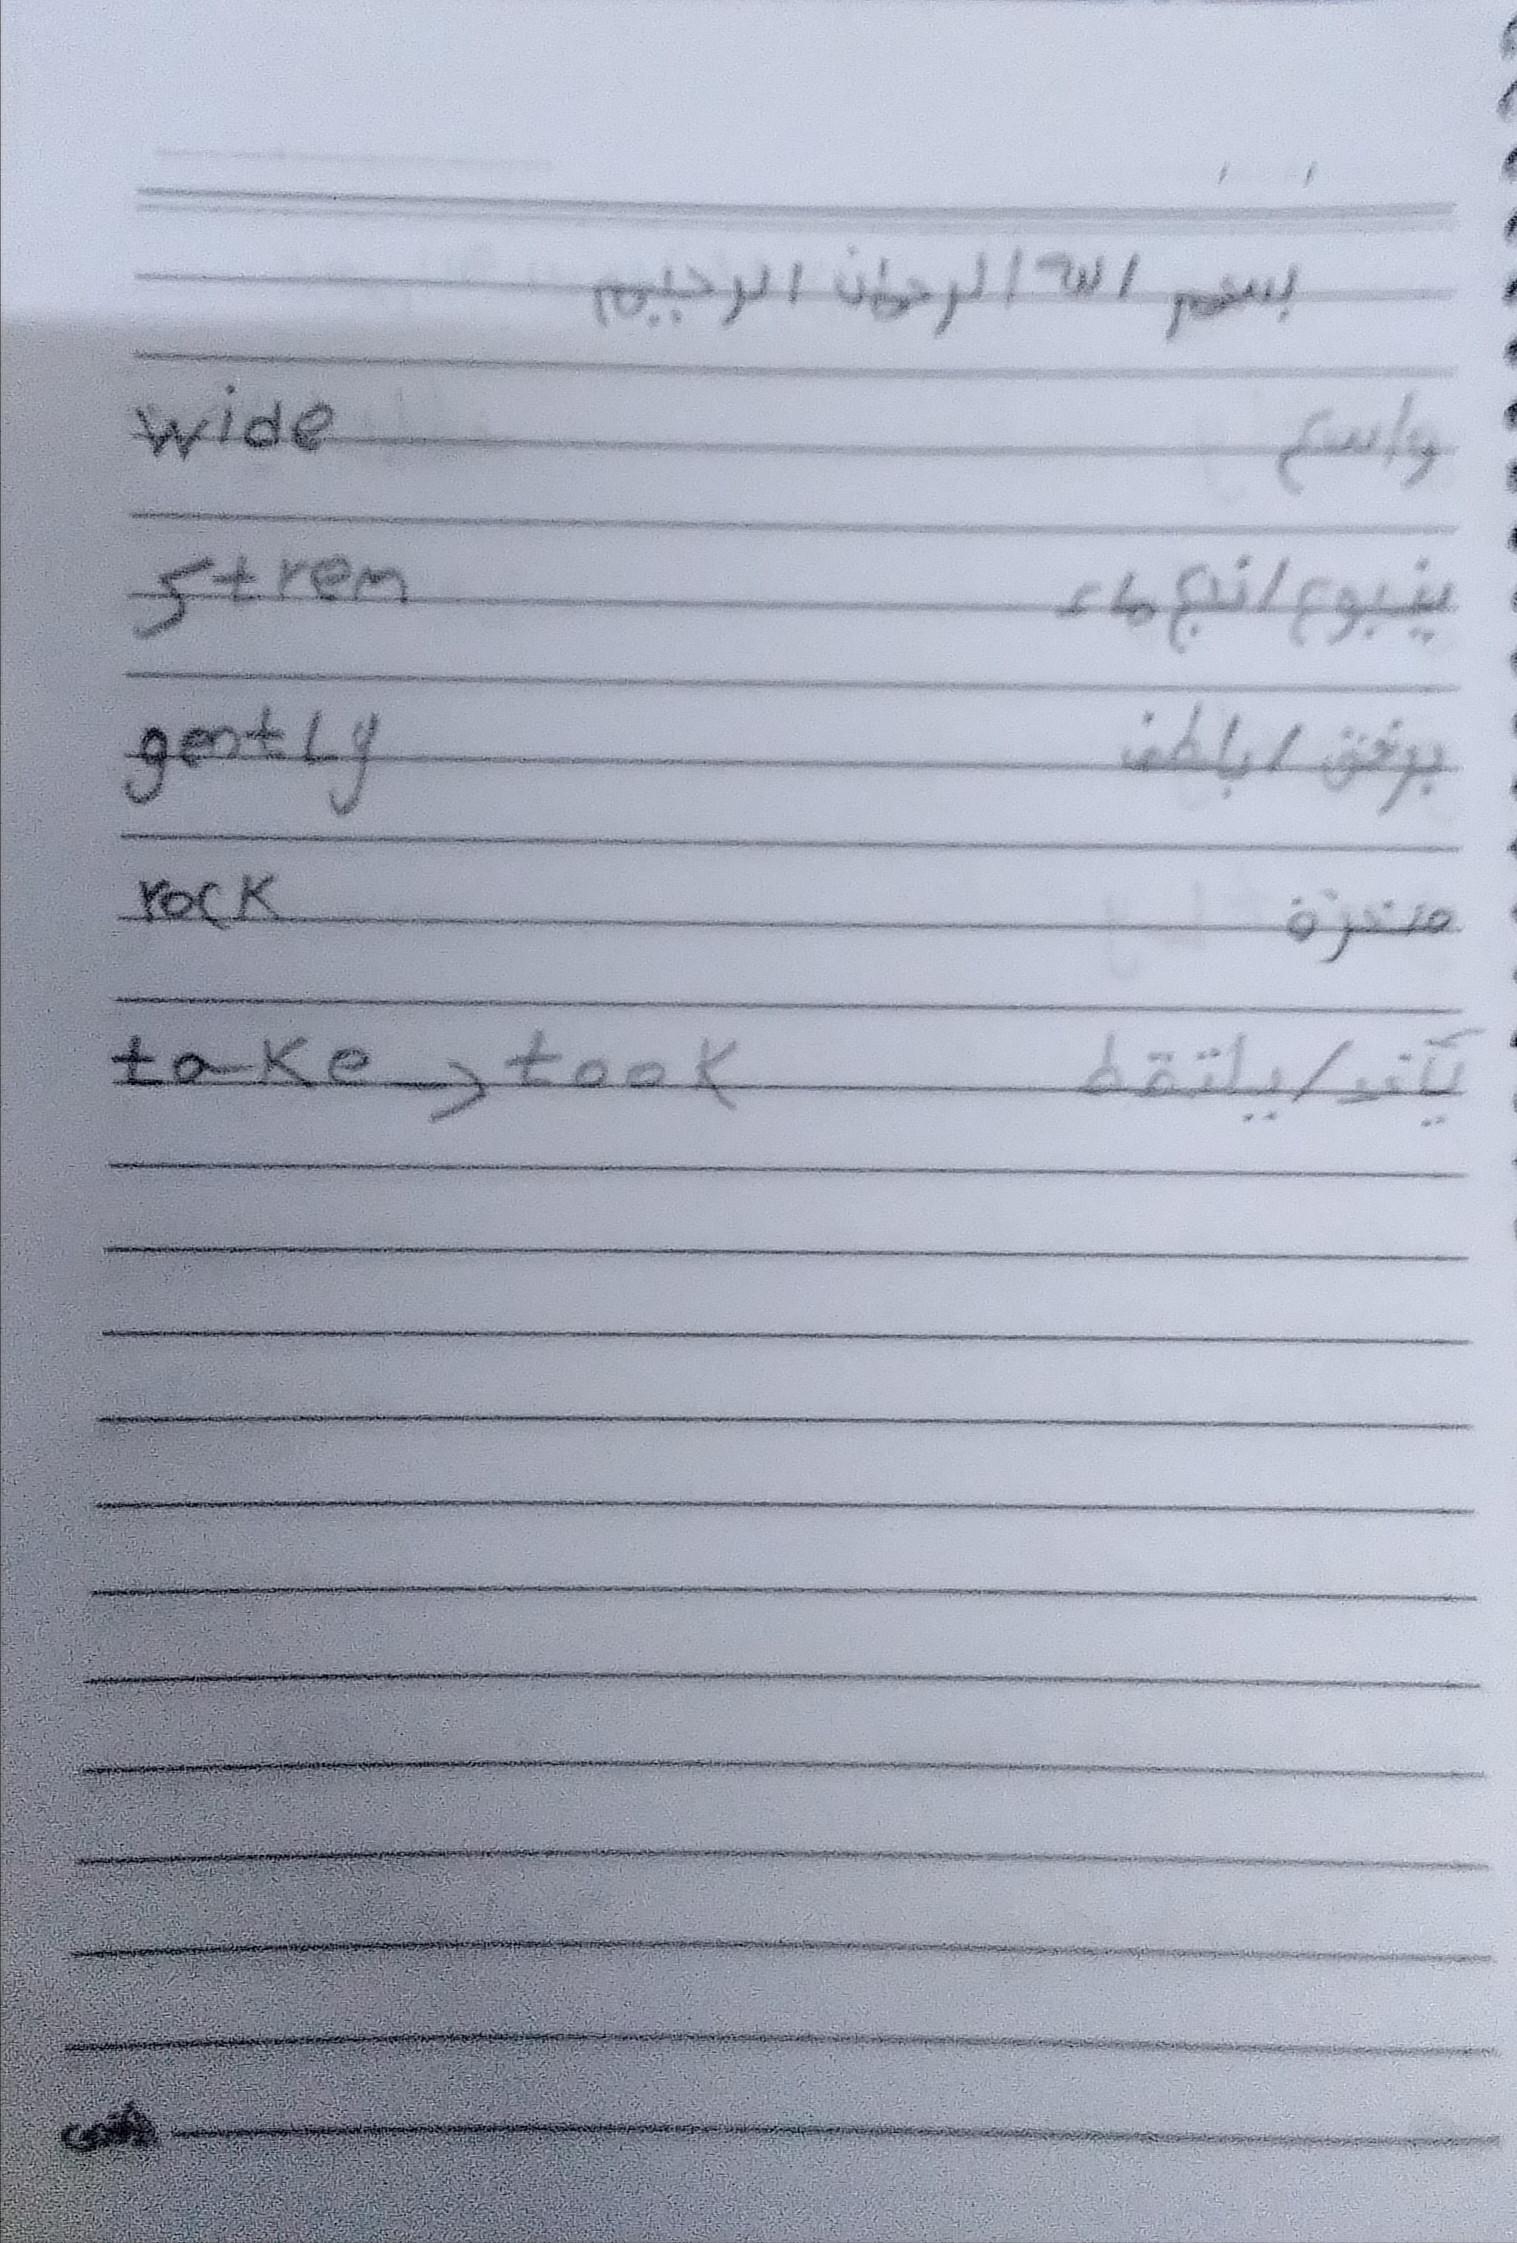 بسم الله الرحمان الرحيم
wide واسع
strem ينبوع / نبع ماء
gently برفق / بلطف
rock صخرة
take → took يأخذ / يلتقط